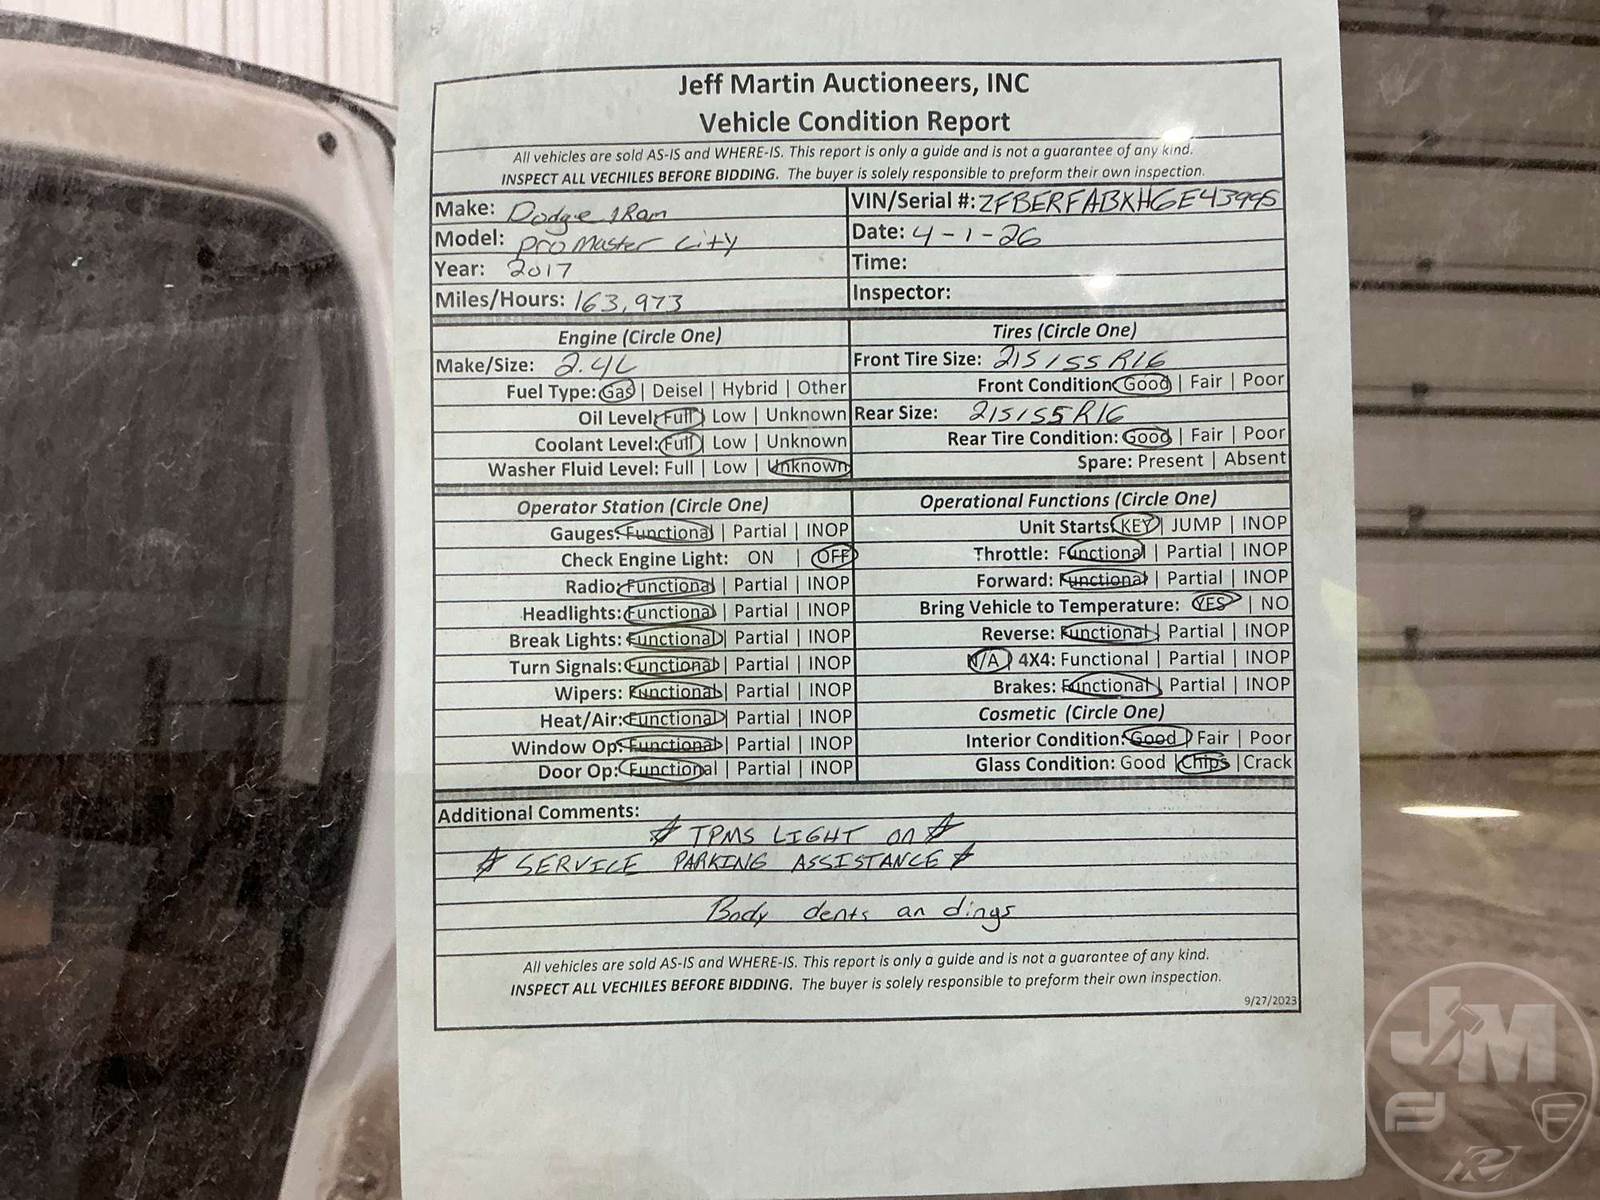 Jeff Martin Auctioneers, INC
Vehicle Condition Report
All vehicles are sold AS-IS and WHERE-IS. This report is only a guide and is not a guarantee of any kind.
INSPECT ALL VECHILES BEFORE BIDDING. The buyer is solely responsible to preform their own inspection.
Make: Dodge / Ram
VIN/Serial #: ZFBERFABXHGE43995
Model: Pro Master City
Date: 4-1-26
Year: 2017
Time:
Miles/Hours: 163,973
Inspector:
Engine (Circle One)
Tires (Circle One)
Make/Size: 2.4L
Front Tire Size: 215/55R16
Fuel Type: Gas | Deisel | Hybrid | Other
Front Condition: Good | Fair | Poor
Oil Level: Full | Low | Unknown
Rear Size: 215/55R16
Coolant Level: Full | Low | Unknown
Rear Tire Condition: Good | Fair | Poor
Washer Fluid Level: Full | Low | Unknown
Spare: Present | Absent
Operator Station (Circle One)
Operational Functions (Circle One)
Gauges: Functional | Partial | INOP
Unit Starts: KEY | JUMP | INOP
Check Engine Light: ON | OFF
Throttle: Functional | Partial | INOP
Radio: Functional | Partial | INOP
Forward: Functional | Partial | INOP
Headlights: Functional | Partial | INOP
Bring Vehicle to Temperature: YES | NO
Break Lights: Functional | Partial | INOP
Reverse: Functional | Partial | INOP
Turn Signals: Functional | Partial | INOP
N/A | 4X4: Functional | Partial | INOP
Wipers: Functional | Partial | INOP
Brakes: Functional | Partial | INOP
Heat/Air: Functional | Partial | INOP
Cosmetic (Circle One)
Window Op: Functional | Partial | INOP
Interior Condition: Good | Fair | Poor
Door Op: Functional | Partial | INOP
Glass Condition: Good | Chips | Crack
Additional Comments:
TPMS LIGHT ON
SERVICE PARKING ASSISTANCE
Body dents an dings
All vehicles are sold AS-IS and WHERE-IS. This report is only a guide and is not a guarantee of any kind.
INSPECT ALL VECHILES BEFORE BIDDING. The buyer is solely responsible to preform their own inspection.
9/27/2023
JM